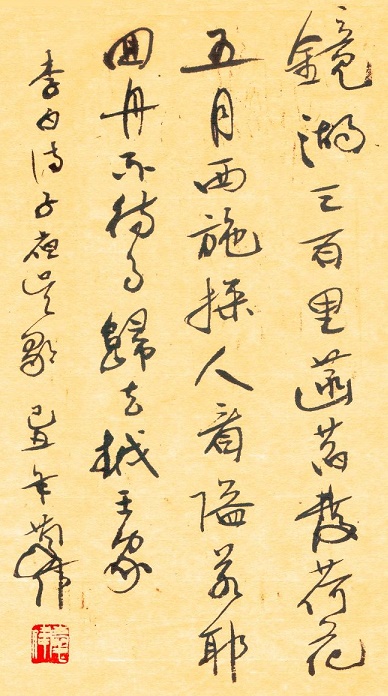 鏡湖三百里菡萏發荷花
五月西施採人看隘若耶
回舟不待月歸去越王家
李白詩子夜吳歌 己丑年